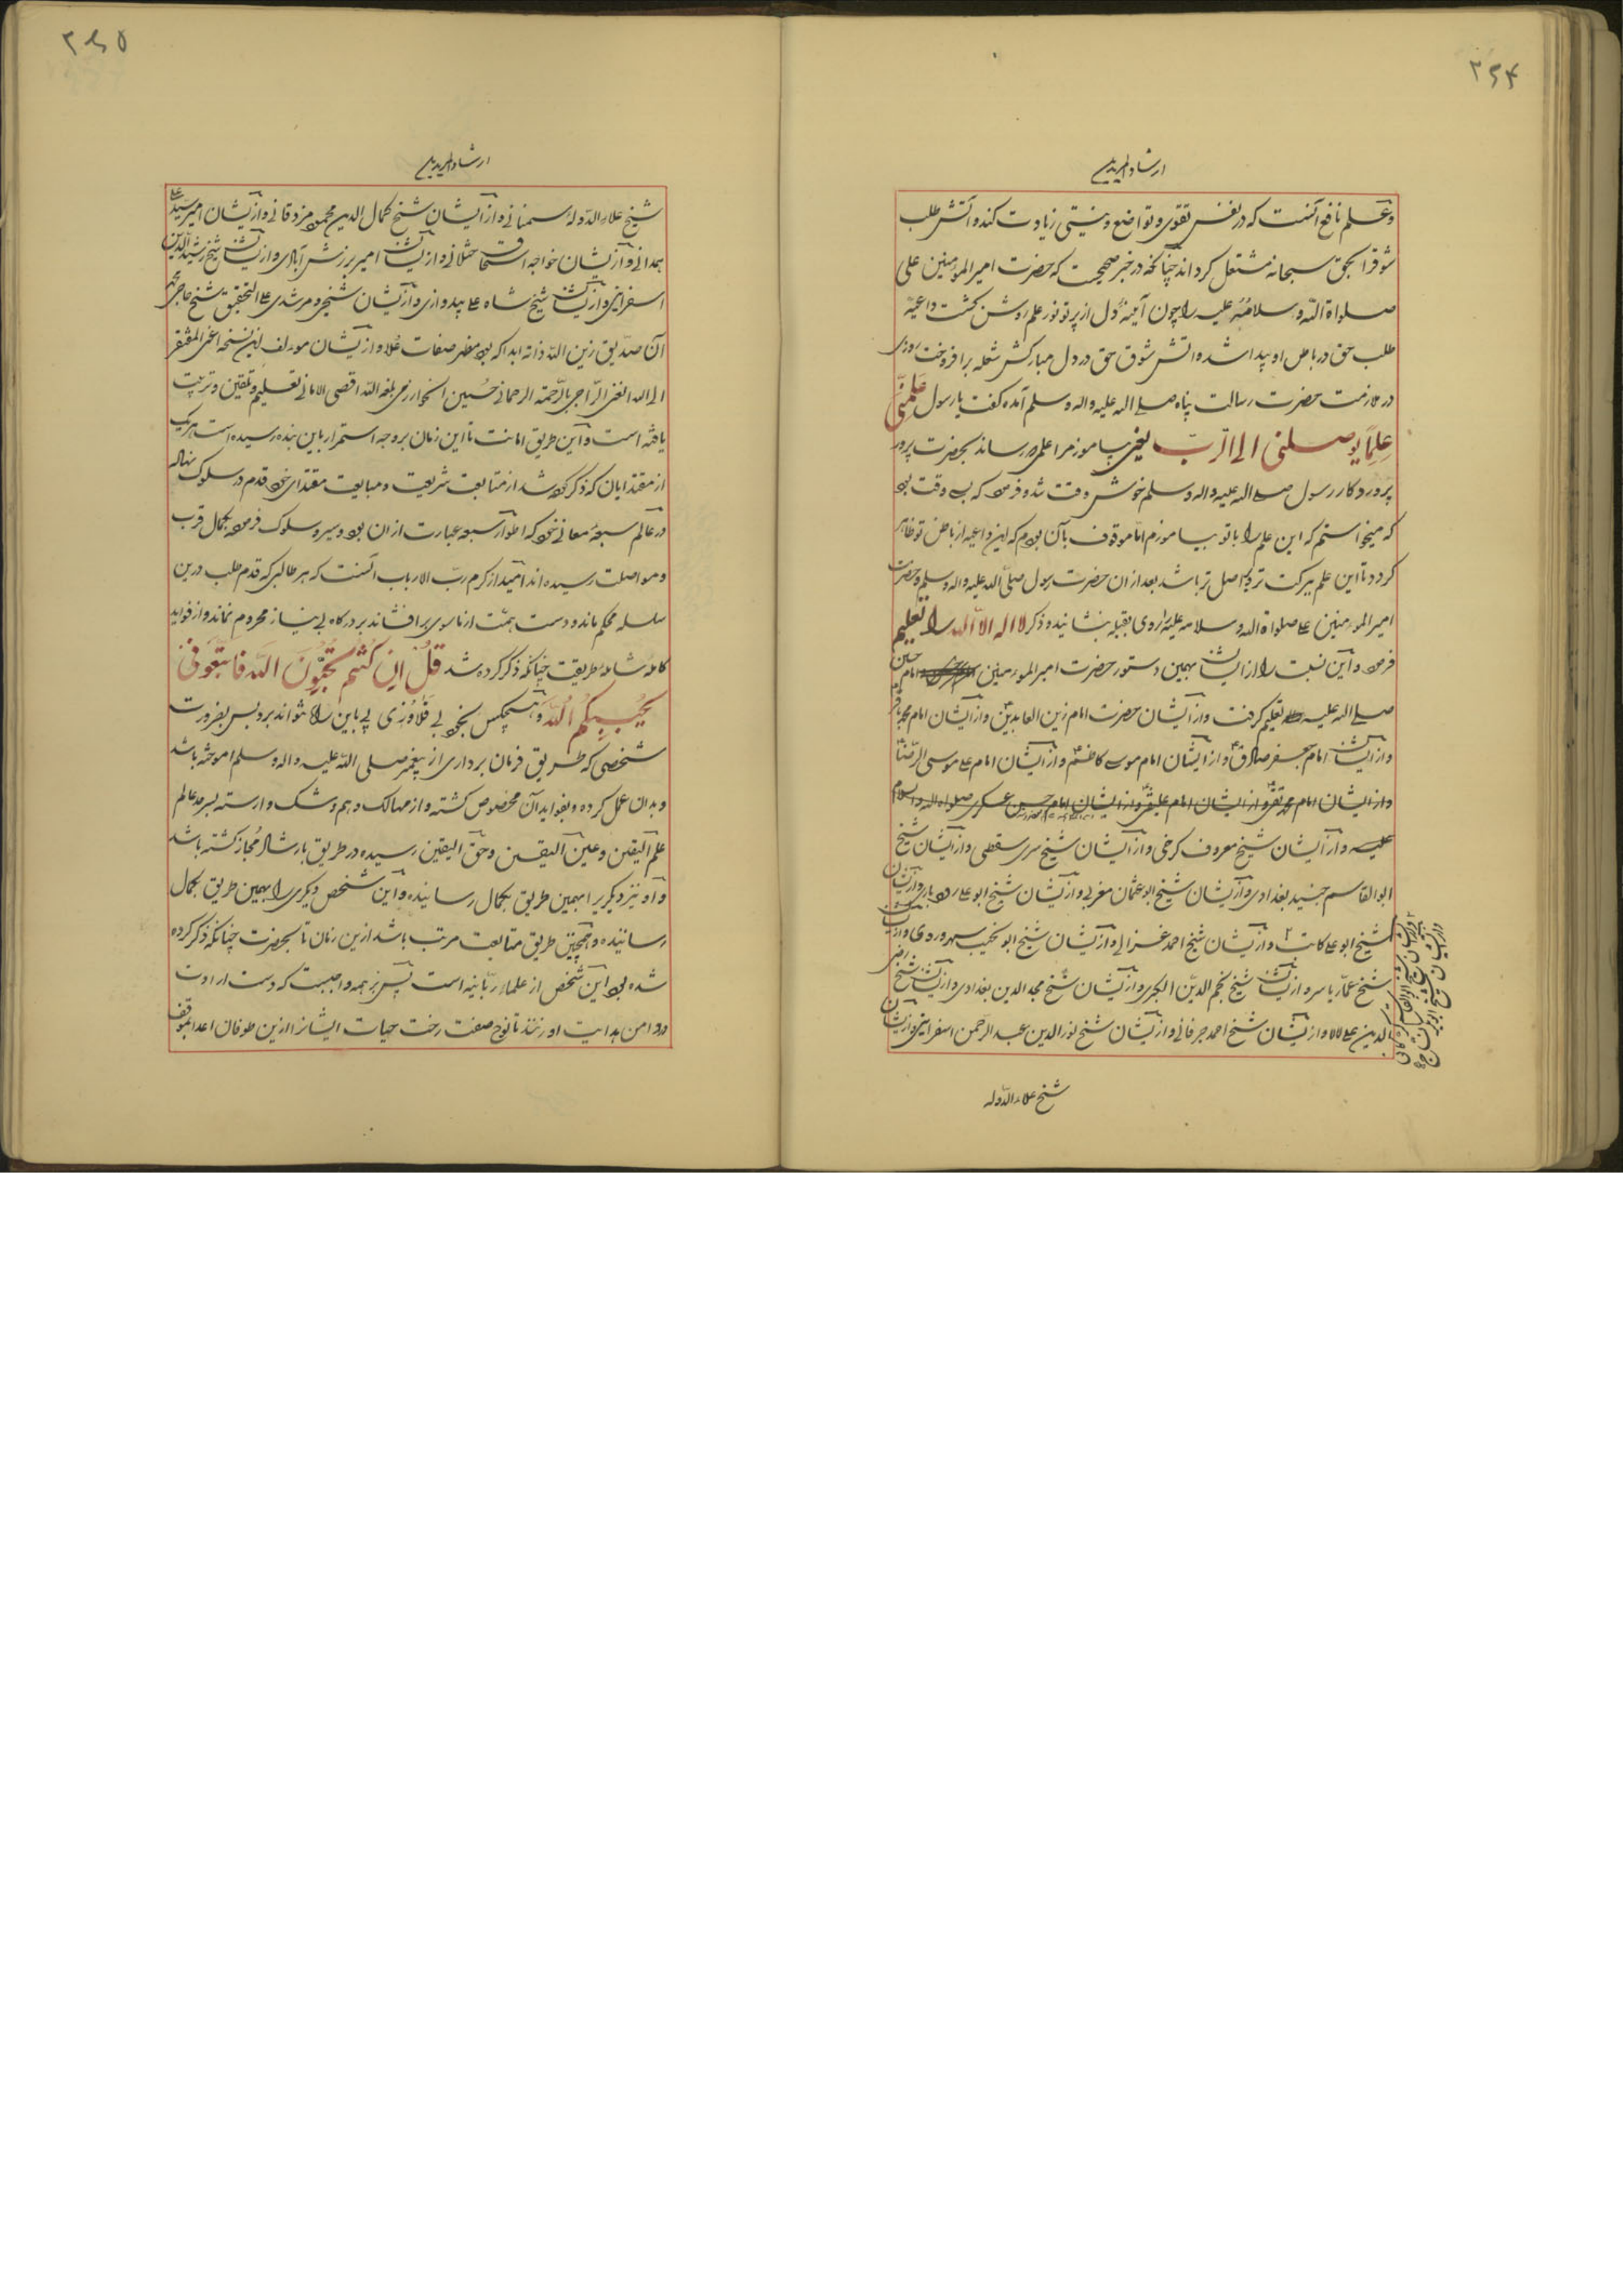 ۲۶۴
ارشاد المریدین
و علم نافع آنست که در نفس تقوی و تواضع و نیستی زیادت کند و آتش طلب
شوق را بحق سبحانه مشتعل کرداند چنانکه در خبر صحیحست که حضرت امیر المومنین علی
صلواة الله و سلامه علیه را چون آینه دل از پرتو نور علم روشن کشت داعیه
طلب حق در باطن او پیدا شده و اتش شوق حق در دل مبارکش شعله برافروخت روزی
در ملازمت حضرت رسالت پناه صلی الله علیه و اله و سلم آمده کفت یا رسول عَلِّمنی
عِلمًا یوصلنی الی الرّب یعنی بیاموز مرا علمی که رساند بحضرت پرور
پروردکار رسول صلی الله علیه و اله و سلم خوش وقت شده فرمود که بسی وقت بود
که میخواستم که این علم را با تو بیاموزم اما موقوف بآن بودم که این داعیه از باطن تو ظاهر
کردد تا این علم ببرکت تر و حاصل تر باشد بعد از ان حضرت رسول صلی الله علیه و اله و سلم و حضرت
امیر المومنین علی صلواة الله و سلامه علیه را روی بقبله بنشانیده ذکر لا اله الا الله را تعلیم
فرمود و این نسبت را از ایشان بهمین دستور حضرت امیر المؤمنین امام حسین
صلی الله علیه تعلیم کرفت و از ایشان حضرت امام زین العابدین و از ایشان امام محمد باقر
و از ایشان امام جعفر صادق و از ایشان امام موسی کاظم و از ایشان امام علی موسی الرضا
و از ایشان امام محمد تقی و از ایشان امام علینقی و از ایشان امام حسن عسکری صلواة الله و السلام
علیه و از ایشان شیخ معروف کرخی و از ایشان شیخ سری سقطی و از ایشان شیخ
ابو القاسم جنید بغدادی و از ایشان شیخ ابو عثمان مغربی و از ایشان شیخ ابو علی رودباری و از ایشان
شیخ ابو علی کاتب ۲ و از ایشان شیخ احمد غزالی و از ایشان شیخ ابو نجیب سهروردی و از ایشان
شیخ عمار یاسر و از ایشان شیخ نجم الدین الکبری و از ایشان شیخ مجد الدین بغدادی و از ایشان شیخ رضی
الدین علی لالا و از ایشان شیخ احمد جرفانی و از ایشان شیخ نور الدین عبد الرحمن اسفراینی و از ایشان
۲ و از ایشان شیخ ابو القاسم کرکانی
و از ایشان شیخ ابو بکر نساج
شیخ علاء الدوله
۲۶۵
ارشاد المریدین
شیخ علاء الدوله سمنانی و از ایشان شیخ کمال الدین محمود مزدقانی و از ایشان امیر سید علی
همدانی و از ایشان خواجه اسحاق ختلانی و از ایشان امیر برزش آبادی و از ایشان شیخ رشید الدین
اسفراینی و از ایشان شیخ شاه علی بیدوازی و از ایشان شیخی و مرشدی علی التحقیق شیخ حاجی محمد
آن صدیق زین الله ذاته ابدا که بود مظهر صفات عُلا و از ایشان مولف این نسخه اعنی المفتقر
الی الله الغنی الراجی بالرحمة الرحمانی حسین الخوارزمی بلغه الله اقصی الامانی تعلیم و تلقین و تربیت
یافته است و این طریق امانت تا این زمان بر وجه استمرار باین بنده رسیده است هر یک
از مقتدایان که ذکر کرده شد از متابعت شریعت و مبایعت مقتدای خود قدم در سلوک نهاده
در عالم سبعه معانی خود که اطوار سبعه عبارت از ان بود و سیر و سلوک فرموده بکمال قرب
و مواصلت رسیده اند امید از کرم رب الارباب آنست که هر طالبی که قدم طلب درین
سلسله محکم مانده و دست همت از ماسوی برافشاند بر درکاه بی نیاز محروم نماند و از فواید
کامله شامله طریقت چنانکه ذکر کرده شد قُل اِن کُنتُم تُحِبّونَ الله فَاتَّبِعونی
یُحبِبکُم الله و هیچکس بخود بی قلاوزی پی باین راه نتواند برد پس بضرورت
شخصی که طریق فرمان برداری از پیغمبر صلی الله علیه و اله و سلم اموخته باشد
و بدان عمل کرده و بفواید آن مخصوص کشته و از مهالک وهم و شک وارسته بسرحد عالم
علم الیقین و عین الیقین و حق الیقین رسیده در طریق بارشاد مُجاز کشته باشد
و او نیز دیکری را بهمین طریق بکمال رسانیده و این شخص دیکری را بهمین طریق بکمال
رسانیده و همچنین طریق متابعت مرتب باشد ازین زمان تا بحضرت چنانکه ذکر کرده
شده بود این شخص از علماء ربانیه است پس بر همه واجبست که دست ارادت
در دامن هدایت او زنند تا نوح صفت رخت حیات ایشانرا ازین طوفان اعدا بموقف